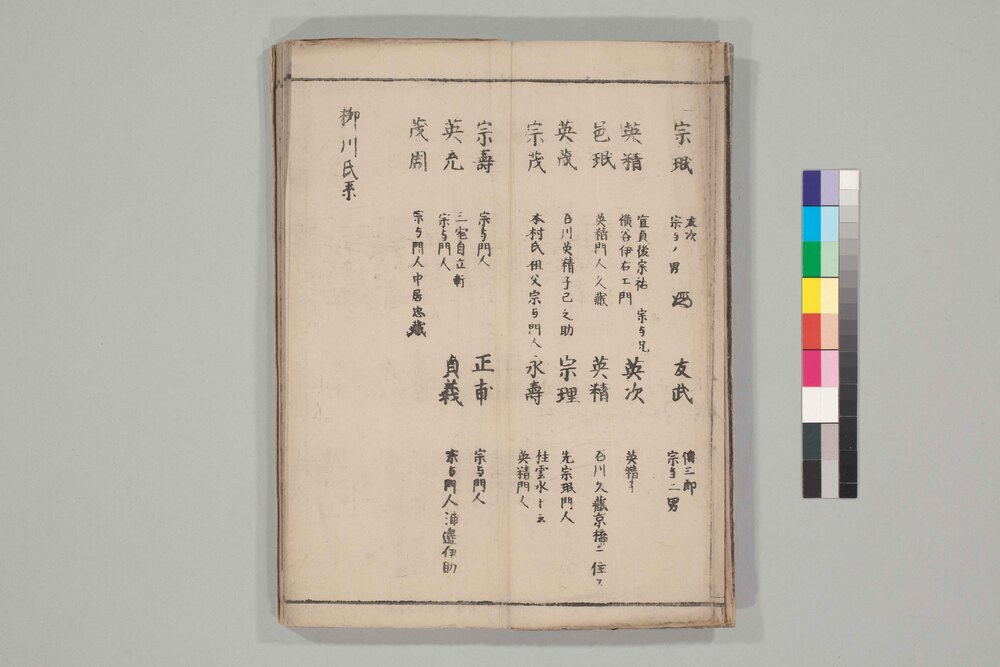 宗珉
友次
宗与ノ男
友武
傳三郎
宗与二男
英精
宜貞後宗祐 宗与兄
横谷伊右エ門
英次
英精子
邑珉
英精門人久蔵
英精
石川久蔵京橋ニ住ス
英茂
石川英精子己之助
宗理
先宗珉門人
宗茂
本村氏祖父宗与門人
永壽
桂雲水ト云
英精門人
宗壽
宗与門人
正甫
宗与門人
英充
三宅自立軒
宗与門人
貞義
宗与門人浦邉伊助
茂周
宗与門人中居忠蔵
柳川氏系